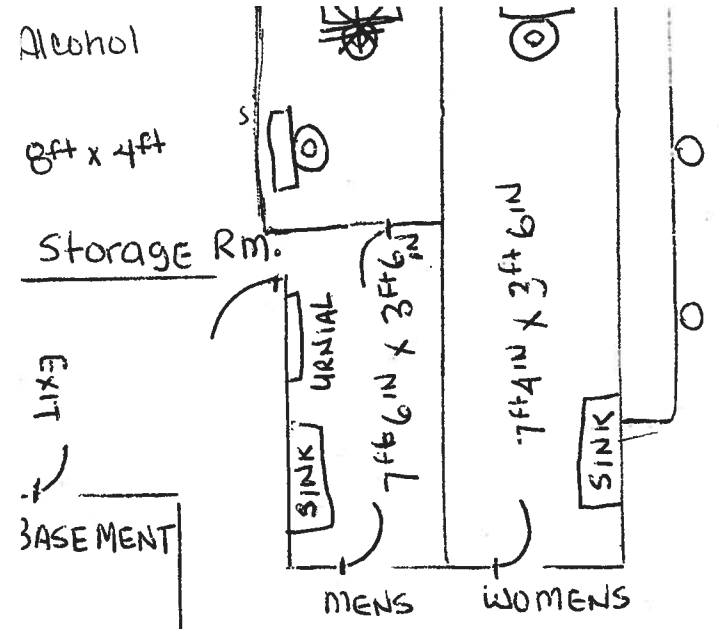 Alcohol
8ft x 4ft
Storage Rm.
S
EXIT
BASEMENT
URNIAL
SINK
7ft 6IN x 3ft 6IN
7ft 4IN x 3ft 6IN
SINK
MENS
WOMENS